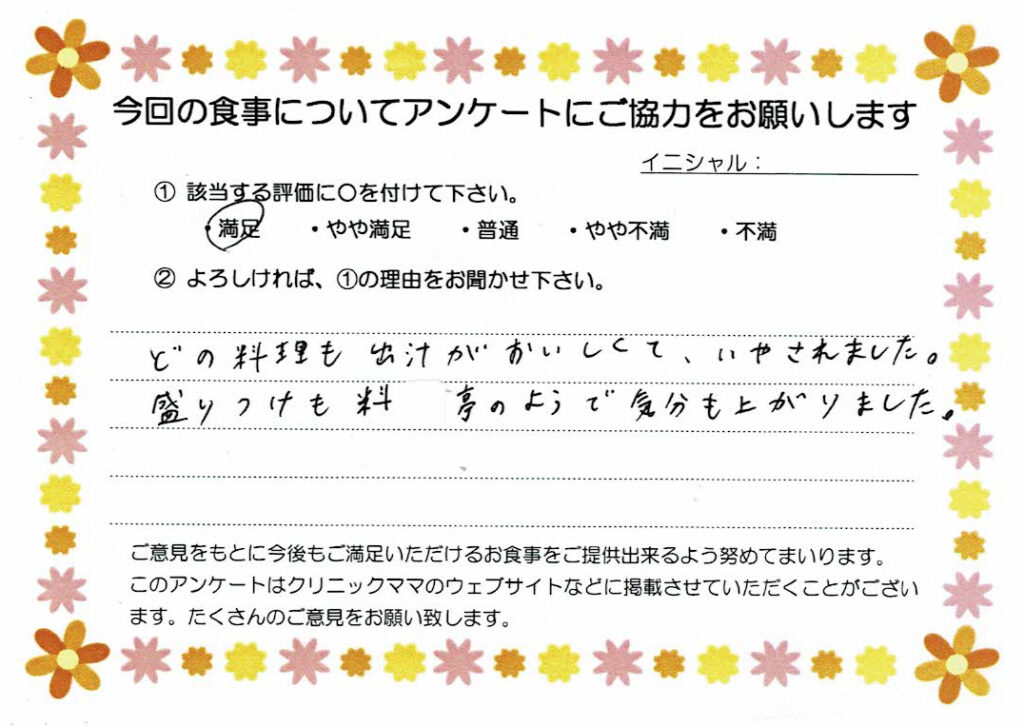 今回の食事についてアンケートにご協力をお願いします
イニシャル：
① 該当する評価に〇を付けて下さい。
・満足 ・やや満足 ・普通 ・やや不満 ・不満
② よろしければ、①の理由をお聞かせ下さい。
どの料理も出汁がおいしくて、いやされました。
盛りつけも料 亭のようで気分も上がりました。
ご意見をもとに今後もご満足いただけるお食事をご提供出来るよう努めてまいります。
このアンケートはクリニックママのウェブサイトなどに掲載させていただくことがござい
ます。たくさんのご意見をお願い致します。